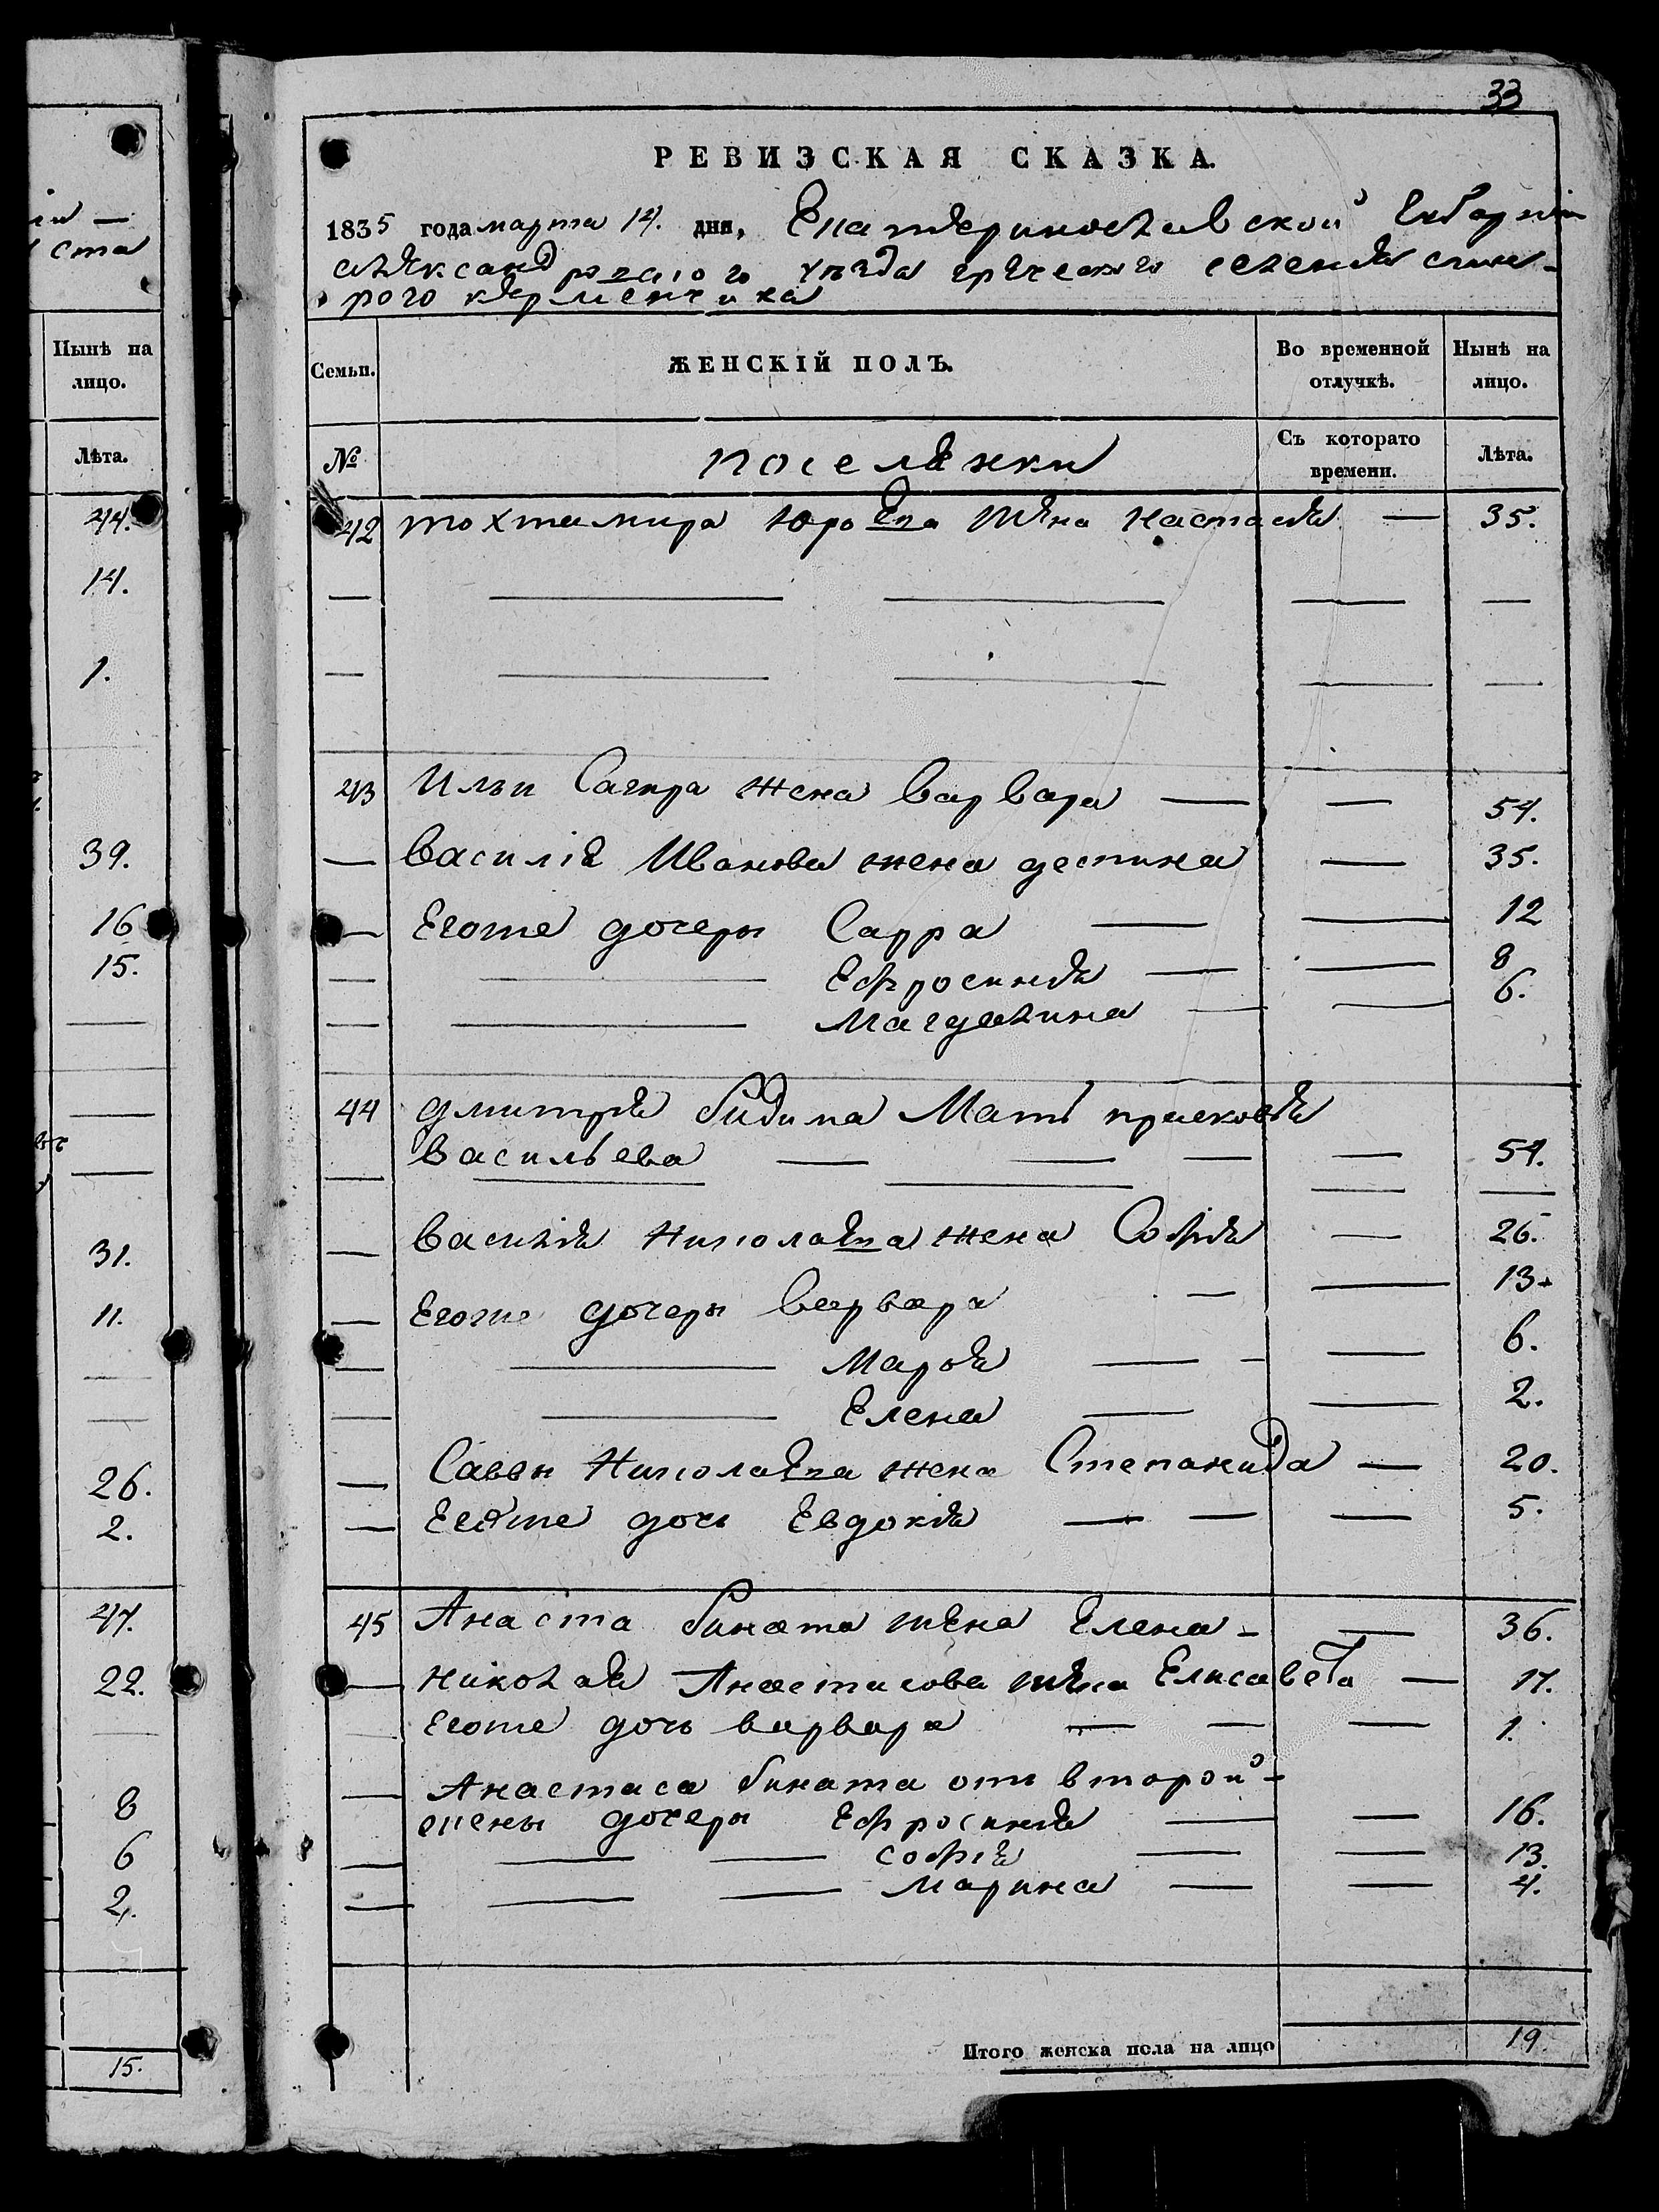 33
РЕВИЗСКАЯ СКАЗКА.
1835 года марта 14. дня, Екатеринославской Губернiи
александровского уезда греческого селения старого
рого керменчика
Нынѣ на
лицо.
Лѣта.
44.
14.
1.
39.
16
15.
31.
11.
26.
2.
47.
22.
8
6
2.
15.
Семьи.
ЖЕНСКIЙ ПОЛЪ.
Во временной
отлучкѣ.
Нынѣ на
лицо.
№
поселянки
Съ которато
времени.
Лѣта.
42 тохтамира Юрьева жена Настасия — 35.
43 Ильи Сагира жена варвара — — 54.
— Василiя Иванова жена деспина — 35.
— Егоже дочери Сарра — — 12
— — Ефросиния — — 8
— — Магдалина — — 6.
44 дмитрия Мать прасковия
васильева — — — — 54.
— Василия Николаева жена София — 26.
— Егоже дочери варвара — — 13.
— — Мария — — — 6.
— — Елена — — 2.
— Саввы Николаева жена Степанида — 20.
— Егоже дочь Евдокия — — — 5.
45 Анаста бината жена Елена - — 36.
— николая Анастасова жена Елисавета — 17.
Егоже дочь варвара — — — 1.
— Анастаса бината отъ второй -
жены дочери Ефросиния — — 16.
— — — софия — — 13.
— — — Марина — — 4.
Итого женска пола на лицо 19